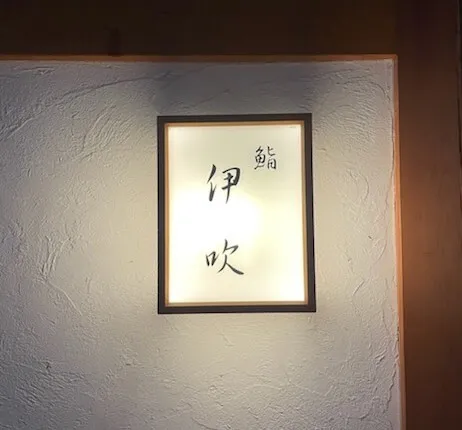 鮨
伊吹